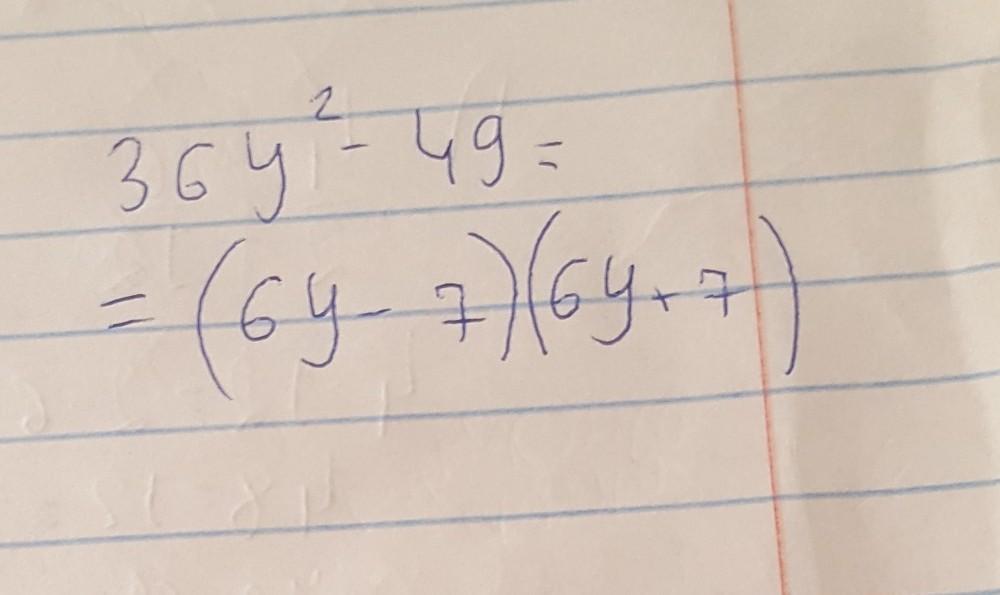 36y² - 49 =
= (6y - 7)(6y + 7)